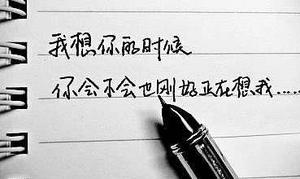 我想你的时候
你会不会也刚好正在想我.....